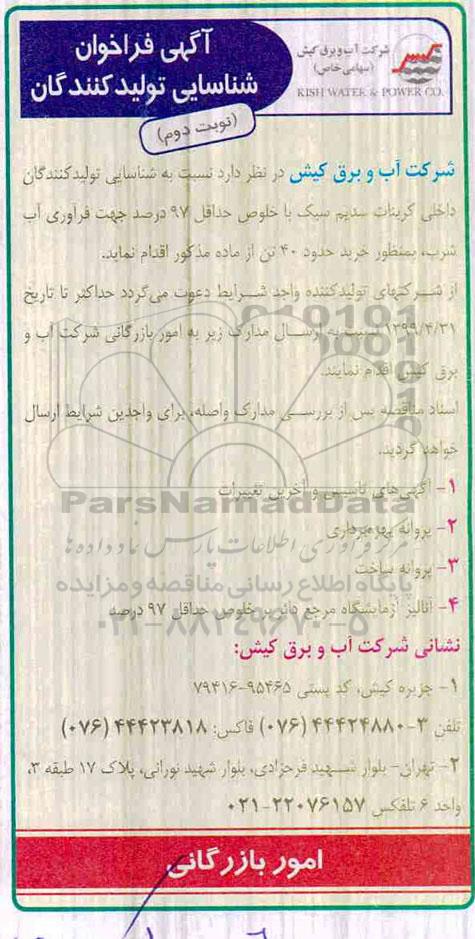 آگهی فراخوان
شناسایی تولیدکنندگان
(نوبت دوم)
شرکت آب و برق کیش
(سهامی خاص)
KISH WATER & POWER CO.
شرکت آب و برق کیش در نظر دارد نسبت به شناسایی تولیدکنندگان
داخلی کربنات سدیم سبک با خلوص حداقل ۹۷ درصد جهت فرآوری آب
شرب، بمنظور خرید حدود ۴۰ تن از ماده مذکور اقدام نماید.
از شرکتهای تولیدکننده واجد شرایط دعوت می‌گردد حداکثر تا تاریخ
۱۳۹۹/۴/۳۱ نسبت به ارسال مدارک زیر به امور بازرگانی شرکت آب و
برق کیش اقدام نمایند.
اسناد مناقصه پس از بررسی مدارک واصله، برای واجدین شرایط ارسال
خواهد گردید.
۱- آگهی‌های تاسیس و آخرین تغییرات
ParsNamadData
۲- پروانه بهره‌برداری
مرکز فرآوری اطلاعات پارس نماد داده‌ها
۳- پروانه ساخت
پایگاه اطلاع رسانی مناقصه و مزایده
۴- آنالیز آزمایشگاه مرجع دائر بر خلوص حداقل ۹۷ درصد
۰۲۱-۸۸۳۴۹۶۷۰-۵
نشانی شرکت آب و برق کیش:
۱- جزیره کیش، کد پستی ۹۵۴۶۵-۷۹۴۱۶
تلفن ۳-۴۴۴۲۴۸۸۰ (۰۷۶) فاکس: ۴۴۴۲۳۸۱۸ (۰۷۶)
۲- تهران- بلوار شهید فرحزادی، بلوار شهید نورانی، پلاک ۱۷ طبقه ۳،
واحد ۶ تلفکس ۲۲۰۷۶۱۵۷-۰۲۱
امور بازرگانی